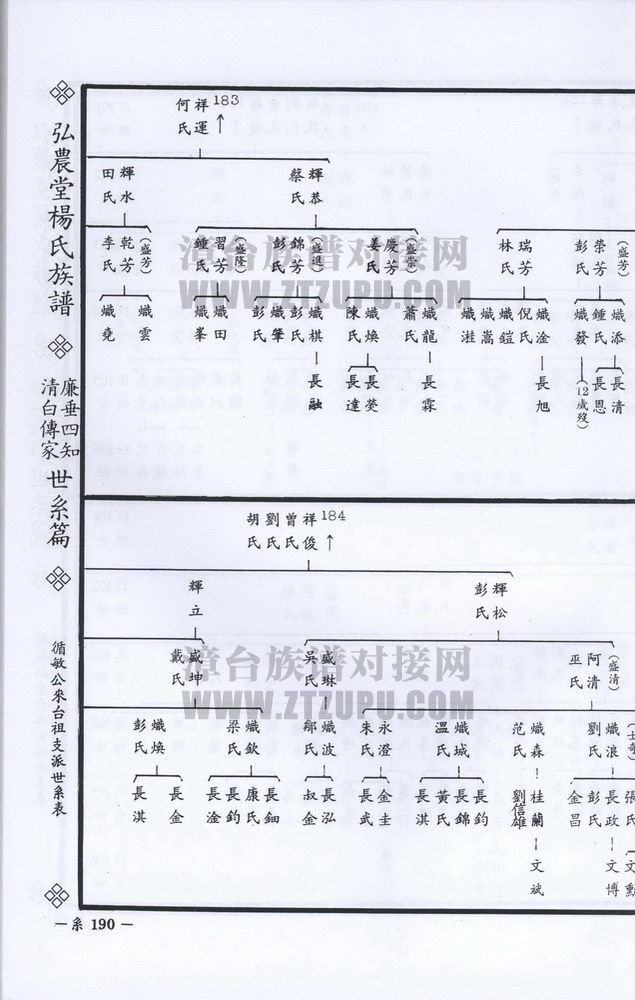 弘農堂楊氏族譜
廉垂四知
清白傳家
世系篇
循敏公來台祖支派世系表
— 系 190 —
183 ↑
祥運 何氏
輝恭 蔡氏
輝水 田氏
(盛芳) 榮芳 彭氏
瑞芳 林氏
(盛常) 慶芳 姜氏
(盛進) 錦芳 彭氏
(盛隆) 習芳 鍾氏
(盛芳) 乾芳 李氏
熾添 鍾氏 熾發
熾淦 倪氏 熾鎧 熾嵩 熾溎
熾龍 蕭氏 熾煥 陳氏
熾棋 彭氏 熾肇 彭氏
熾田 熾峯
熾雲 熾堯
長清 長恩 (12歲歿)
長旭
長霖
長燊 長達
長融
184 ↑
祥俊 曾氏 劉氏 胡氏
輝松 彭氏
輝立
(盛清) 阿清 巫氏
盛琳 吳氏
盛坤 戴氏
熾浪 劉氏
熾森 范氏
熾城 溫氏
永澄 朱氏
熾波 鄔氏
熾欽 梁氏
熾煥 彭氏
張氏 長政 彭氏 金昌
桂蘭 劉信雄
長鈞 長錦 黃氏 長淇
金圭 長武
長泓 叔金
長鈿 康氏 長鈞 長淦
長金 長淇
文勳 文博
文斌
漳台族谱对接网
WWW.ZTZUPU.COM
漳台族谱对接网
WWW.ZTZUPU.COM